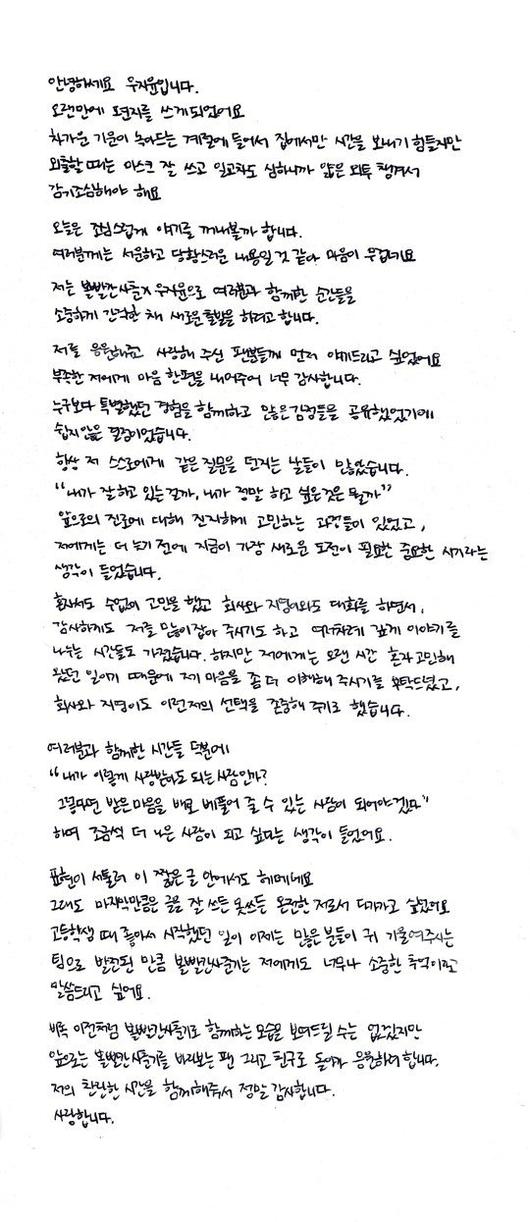 안녕하세요 우지윤입니다.
오랜만에 편지를 쓰게되었어요
차가운 기운이 녹아드는 계절에 들어서 집에서만 시간을 보내기 힘들지만
외출할 때는 마스크 잘 쓰고 일교차도 심하니까 얇은 외투 챙겨서
감기조심해야 해요
오늘은 조심스럽게 얘기를 꺼내볼까 합니다.
여러분께는 서운하고 당황스러운 내용일 것 같아 마음이 무겁네요
저는 볼빨간사춘기 우지윤으로 여러분과 함께한 순간들을
소중하게 간직한 채 새로운 출발을 하려고 합니다.
저를 응원해주고 사랑해 주신 팬분들께 먼저 얘기드리고 싶었어요
부족한 저에게 마음 한편을 내어주어 너무 감사합니다.
누구보다 특별했던 경험을 함께하고 많은 감정들을 공유했었기에
쉽지 않은 결정이었습니다.
항상 저 스스로에게 같은 질문을 던지는 날들이 많았습니다.
"내가 잘 하고 있는 걸까, 내가 정말 하고 싶은 것은 뭘까"
앞으로의 진로에 대해 진지하게 고민하는 과정들이 있었고,
저에게는 더 늦기 전에 지금이 가장 새로운 도전이 필요한 중요한 시기라는
생각이 들었습니다.
혼자서도 수없이 고민을 했고 회사와 지영이와도 대화를 하면서,
감사하게도 저를 많이 잡아 주시기도 하고 여러차례 깊게 이야기를
나누는 시간들도 가졌습니다. 하지만 저에게는 오랜 시간 혼자 고민해
왔던 일이기 때문에 제 마음을 좀 더 이해해 주시기를 부탁드렸고,
회사와 지영이도 이런 저의 선택을 존중해 주기로 했습니다.
여러분과 함께한 시간들 덕분에
"내가 이렇게 사랑받아도 되는 사람인가?
그렇다면 받은 마음을 배로 베풀어 줄 수 있는 사람이 되어야겠다"
하며 조금씩 더 나은 사람이 되고 싶다는 생각이 들었어요.
표현이 서툴러 이 짧은 글 안에서도 헤매네요
그래도 마지막만큼은 글을 잘 쓰든 못쓰든 온전한 저로서 다가가고 싶었어요
고등학생 때 좋아서 시작했던 일이 이제는 많은 분들이 귀 기울여주시는
팀으로 발전된 만큼 볼빨간사춘기는 저에게도 너무나 소중한 추억이라고
말씀드리고 싶어요.
비록 이전처럼 볼빨간사춘기로 함께하는 모습을 보여드릴 수는 없겠지만
앞으로는 볼빨간사춘기를 바라보는 팬 그리고 친구로 돌아가 응원하려 합니다.
저의 찬란한 시간을 함께해주셔서 정말 감사합니다.
사랑합니다.